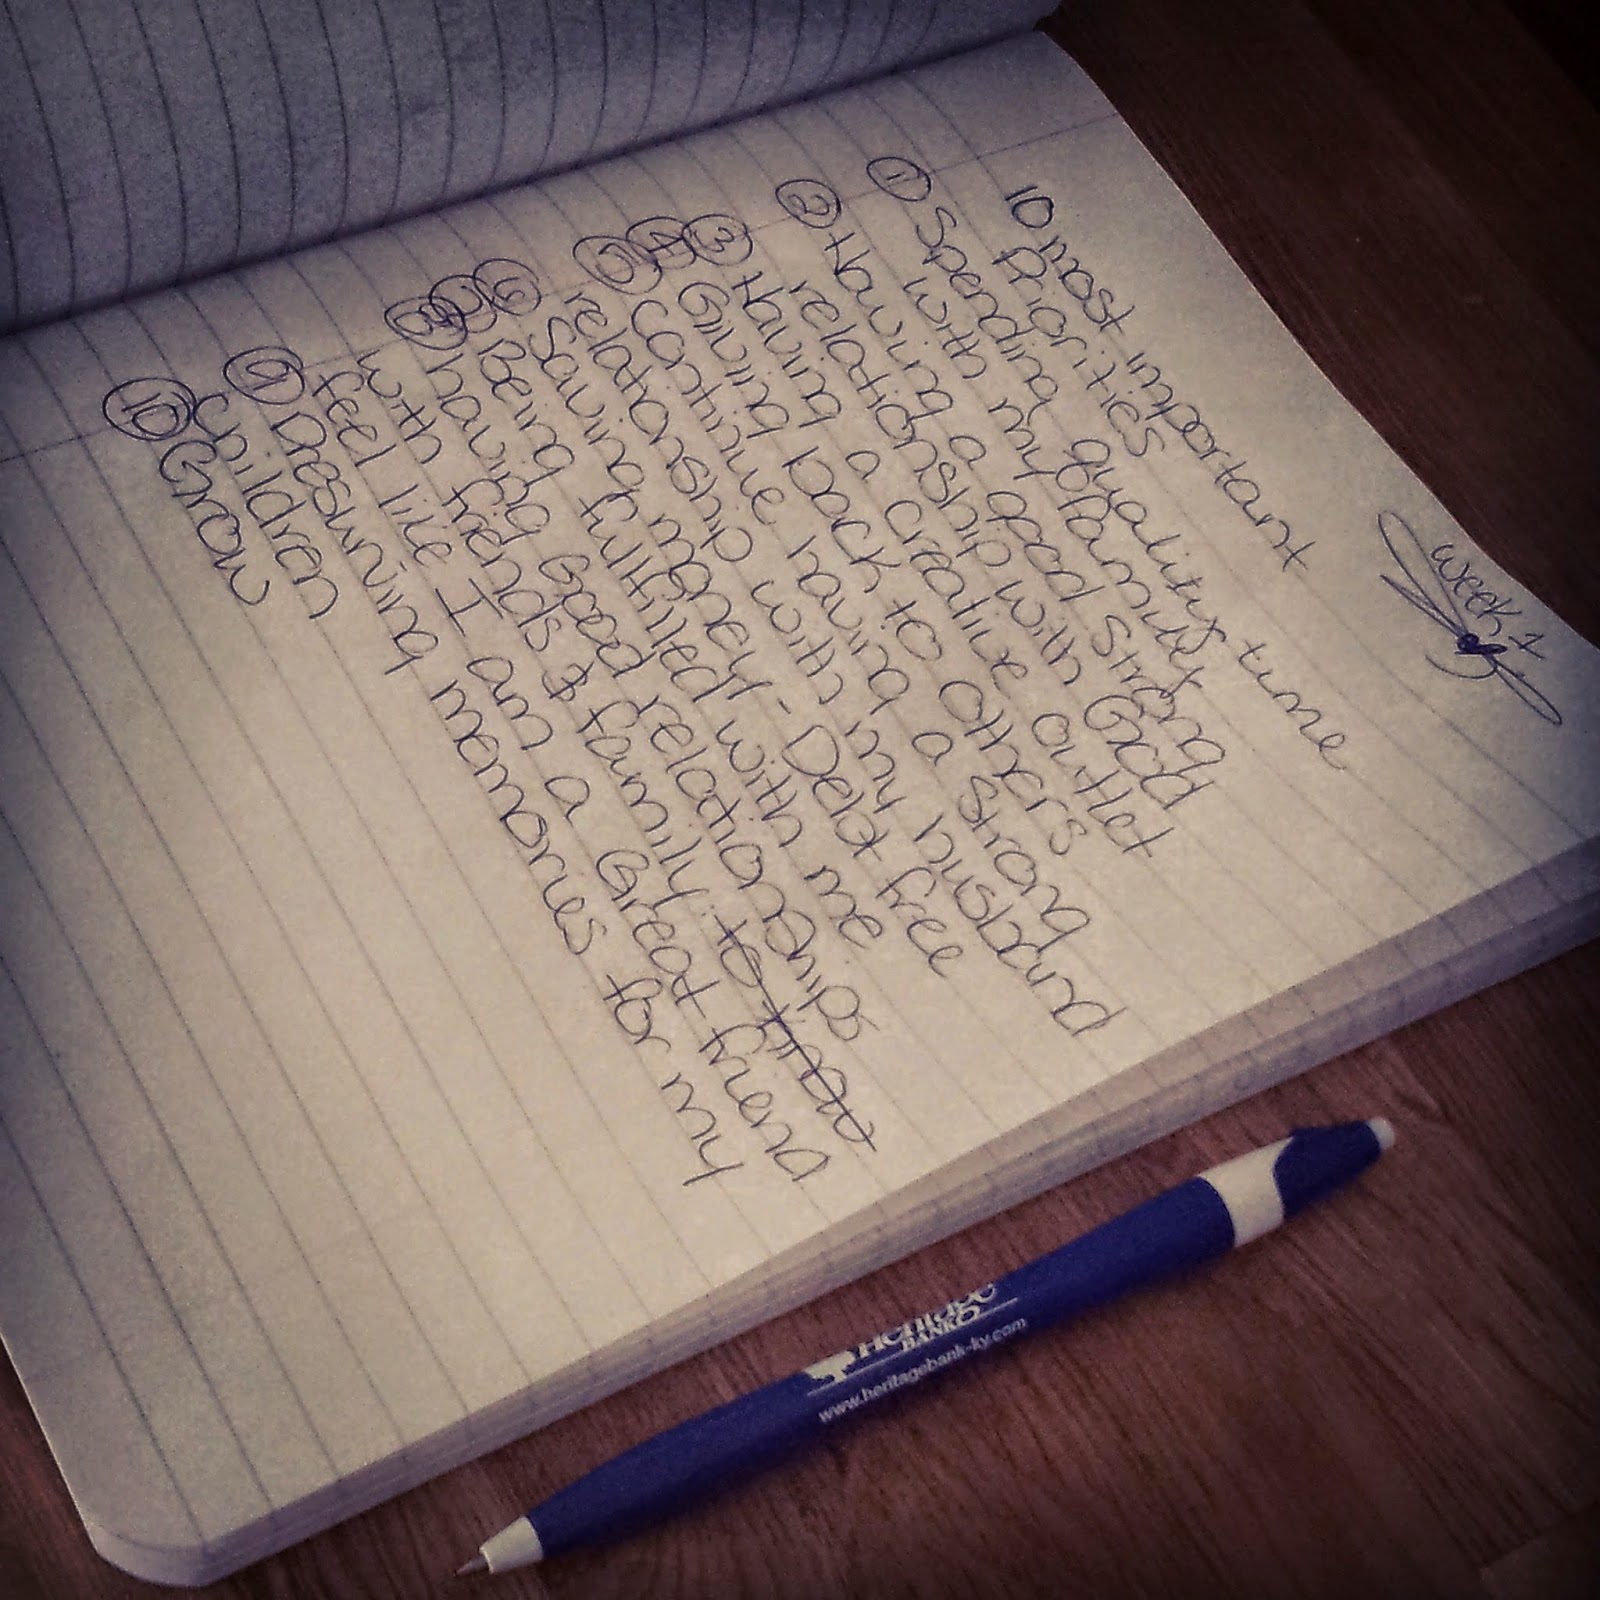 week 7
10 most important
Priorities
① Spending quality time
with my family
② Having a good strong
relationship with God
③ Having a creative outlet
④ Giving back to others
⑤ continue having a strong
relationship with my husband
⑥ Saving money - Debt free
⑦ Being fulfilled with me
⑧ having Good relationships
with friends & family to
feel like I am a Great friend
⑨ Presurving memories for my
children
⑩ Grow
Heritage
BANK
www.heritagebank-ky.com